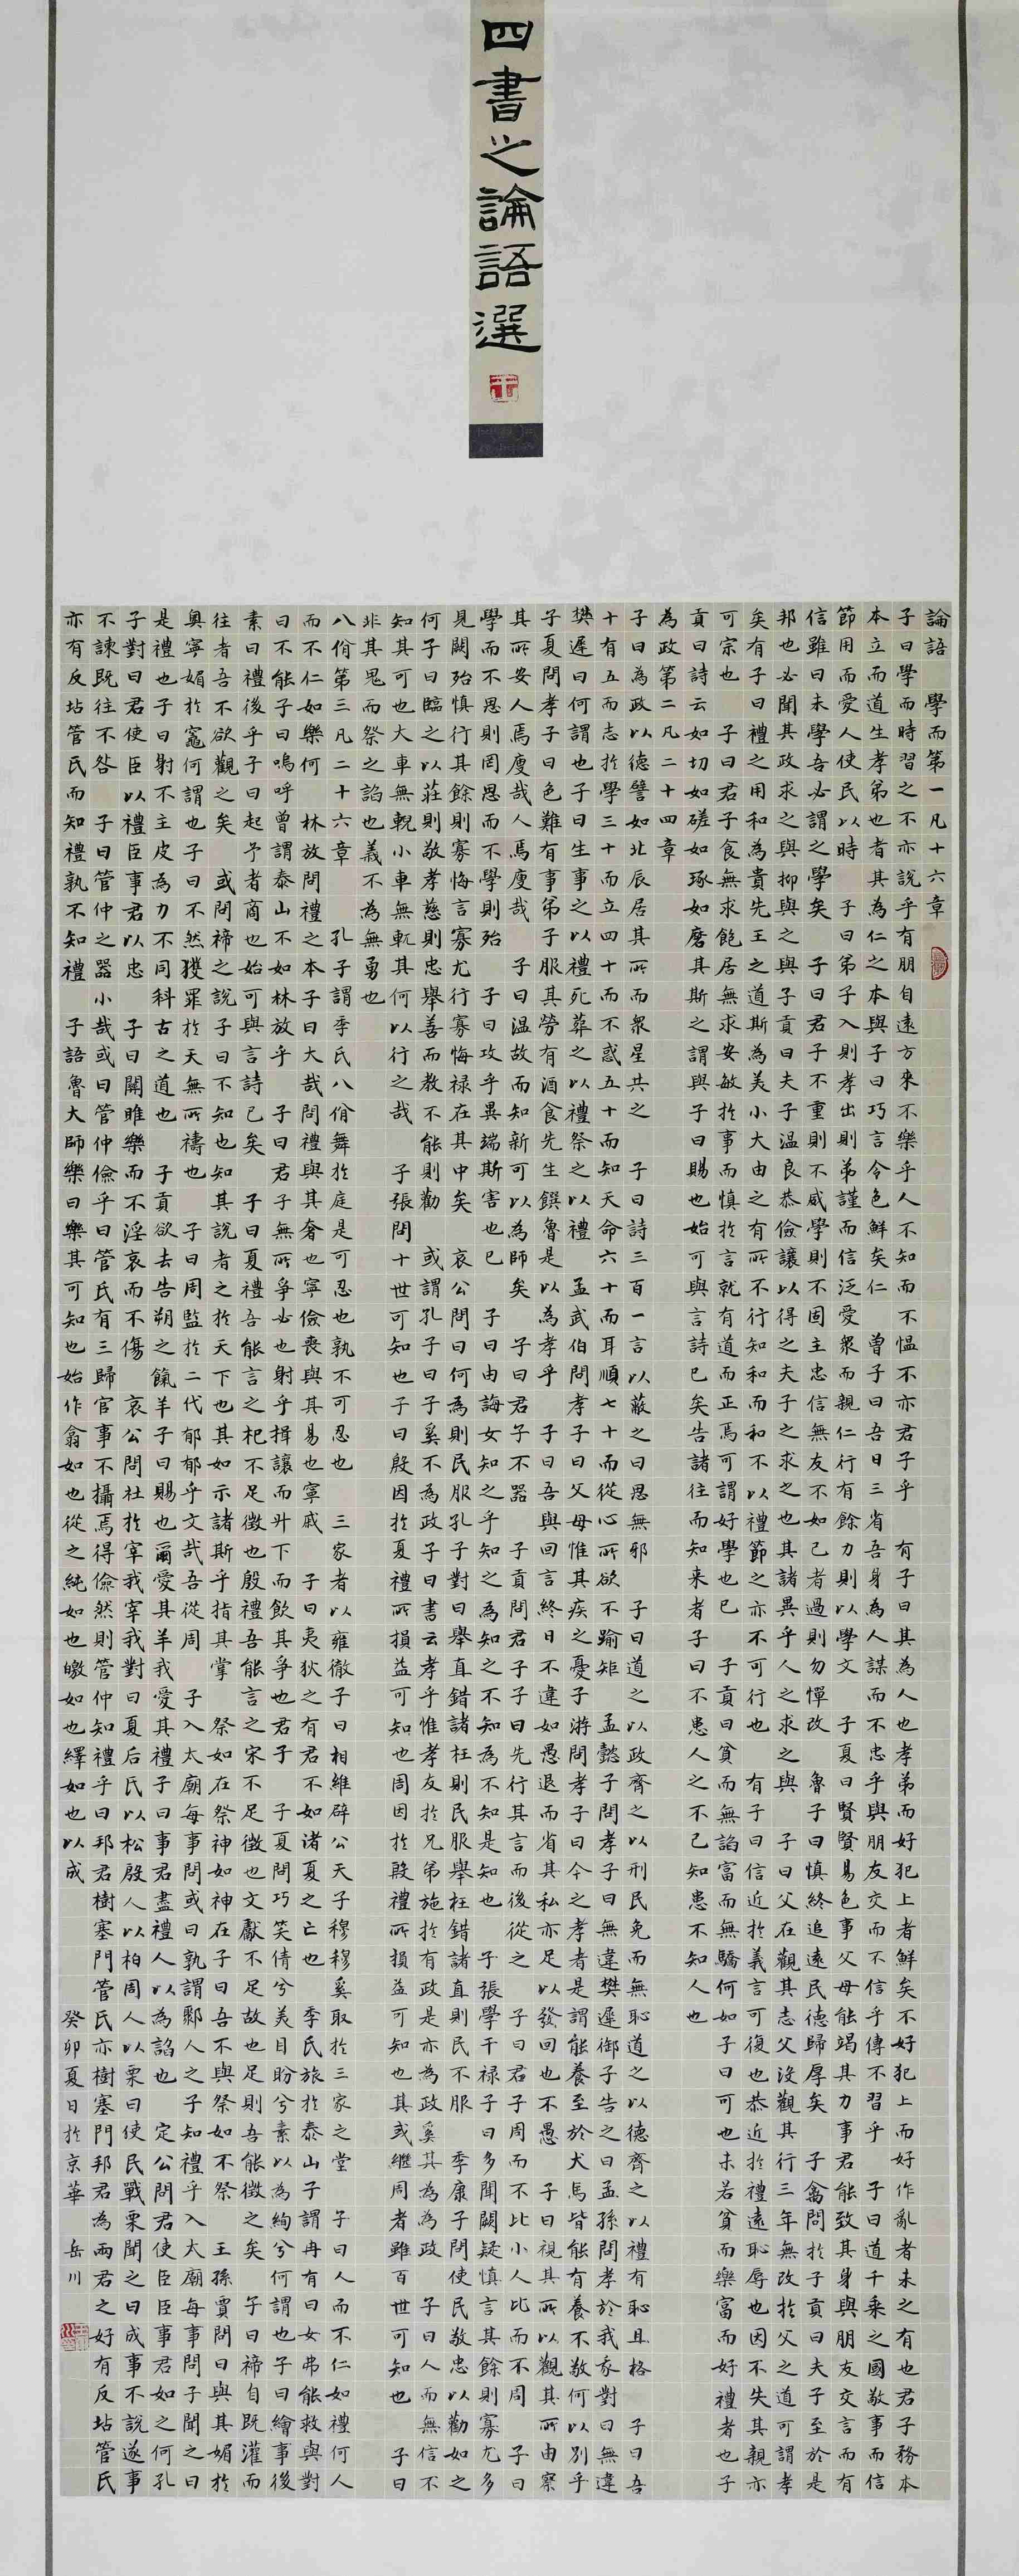 四書之論語選
論語 學而第一凡十六章
子曰學而時習之不亦說乎有朋自遠方來不樂乎人不知而不慍不亦君子乎 有子曰其為人也孝弟而好犯上者鮮矣不好犯上而好作亂者未之有也君子務本
本立而道生孝弟也者其為仁之本與子曰巧言令色鮮矣仁 曾子曰吾日三省吾身為人謀而不忠乎與朋友交而不信乎傳不習乎 子曰道千乘之國敬事而信
節用而愛人使民以時 子曰弟子入則孝出則弟謹而信泛愛衆而親仁行有餘力則以學文 子夏曰賢賢易色事父母能竭其力事君能致其身與朋友交言而有
信雖曰未學吾必謂之學矣 子曰君子不重則不威學則不固主忠信無友不如己者過則勿憚改 魯子曰慎終追遠民德歸厚矣 子禽問於子貢曰夫子至於是
邦也必聞其政求之與抑與之與子貢曰夫子溫良恭儉讓以得之夫子之求之也其諸異乎人之求之與 子曰父在觀其志父沒觀其行三年無改於父之道可謂孝
矣有子曰禮之用和為貴先王之道斯為美小大由之有所不行知和而和不以禮節之亦不可行也 有子曰信近於義言可復也恭近於禮遠恥辱也因不失其親亦
可宗也 子曰君子食無求飽居無求安敏於事而慎於言就有道而正焉可謂好學也已 子貢曰貧而無諂富而無驕何如子曰可也未若貧而樂富而好禮者也子
貢曰詩云如切如磋如琢如磨其斯之謂與子曰賜也始可與言詩已矣告諸往而知来者子曰不患人之不己知患不知人也
為政第二凡二十四章
子曰為政以德譬如北辰居其所而衆星共之 子曰詩三百一言以蔽之曰思無邪 子曰道之以政齊之以刑民免而無恥道之以德齊之以禮有恥且格 子曰吾
十有五而志於學三十而立四十而不惑五十而知天命六十而耳順七十而從心所欲不踰矩 孟懿子問孝子曰無違樊遲御子告之曰孟孫問孝於我對曰無違
樊遲曰何謂也子曰生事之以禮死葬之以禮祭之以禮 孟武伯問孝子曰父母惟其疾之憂子游問孝子曰今之孝者是謂能養至於犬馬皆能有養不敬何以別乎
子夏問孝子曰色難有事弟子服其勞有酒食先生饌魯是以為孝乎 子曰吾與回言終日不違如愚退而省其私亦足以發回也不愚 子曰視其所以觀其所由察
其所安人焉廋哉人焉廋哉 子曰温故而知新可以為師矣 子曰君子不器 子貢問君子子曰先行其言而後從之 子曰君子周而不比小人比而不周 子曰
學而不思則罔思而不學則殆 子曰攻乎異端斯害也已 子曰由誨女知之乎知之為知之不知為不知是知也 子張學干禄子曰多聞闕疑慎言其餘則寡尤多
見闕殆慎行其餘則寡悔言寡尤行寡悔禄在其中矣 哀公問曰何為則民服孔子對曰舉直錯諸枉則民服舉枉錯諸直則民不服 季康子問使民敬忠以勸如之
何子曰臨之以莊則敬孝慈則忠舉善而教不能則勸 或謂孔子曰子奚不為政子曰書云孝乎惟孝友於兄弟施於有政是亦為政奚其為為政 子曰人而無信不
知其可也大車無輗小車無軏其何以行之哉 子張問十世可知也子曰殷因於夏禮所損益可知也周因於殷禮所損益可知也其或繼周者雖百世可知也 子曰
非其鬼而祭之諂也義不為無勇也
八佾第三凡二十六章 孔子謂季氏八佾舞於庭是可忍也孰不可忍也 三家者以雍徹子曰相維辟公天子穆穆奚取於三家之堂 子曰人而不仁如禮何人
而不仁如樂何 林放問禮之本子曰大哉問禮與其奢也寧儉喪與其易也寧戚 子曰夷狄之有君不如诸夏之亡也 季氏旅於泰山子謂冉有曰女弗能救與對
曰不能子曰嗚呼曾謂泰山不如林放乎 子曰君子無所爭必也射乎揖讓而升下而飲其爭也君子 子夏問巧笑倩兮美目盼兮素以為絢兮何謂也子曰繪事後
素曰禮後乎子曰起予者商也始可與言詩已矣 子曰夏禮吾能言之杞不足徵也殷禮吾能言之宋不足徵也文獻不足故也足則吾能徵之矣 子曰禘自既灌而
往者吾不欲觀之矣 或問禘之說子曰不知也知其說者之於天下也其如示諸斯乎指其掌 祭如在祭神如神在子曰吾不與祭如不祭 王孫賈問曰與其媚於
奧寧媚於竈何謂也子曰不然獲罪於天無所禱也 子曰周監於二代郁郁乎文哉吾從周 子入太廟每事問或曰孰謂鄹人之子知禮乎入大廟每事問子聞之曰
是禮也子曰射不主皮為力不同科古之道也 子貢欲去告朔之餼羊子曰賜也爾愛其羊我愛其禮子曰事君盡禮人以為諂也 定公問君使臣臣事君如之何孔
子對曰君使臣以禮臣事君以忠 子曰關雎樂而不淫哀而不傷 哀公問社於宰我宰我對曰夏后氏以松殷人以柏周人以栗曰使民戰栗聞之曰成事不說遂事
不諫既往不咎 子曰管仲之器小哉或曰管仲儉乎曰管氏有三歸官事不攝焉得儉然則管仲知禮乎曰邦君樹塞門管氏亦樹塞門邦君為兩君之好有反坫管氏
亦有反坫管氏而知禮孰不知禮 子語魯大師樂曰樂其可知也始作翕如也從之純如也皦如也繹如也以成 癸卯夏日於京華 岳川